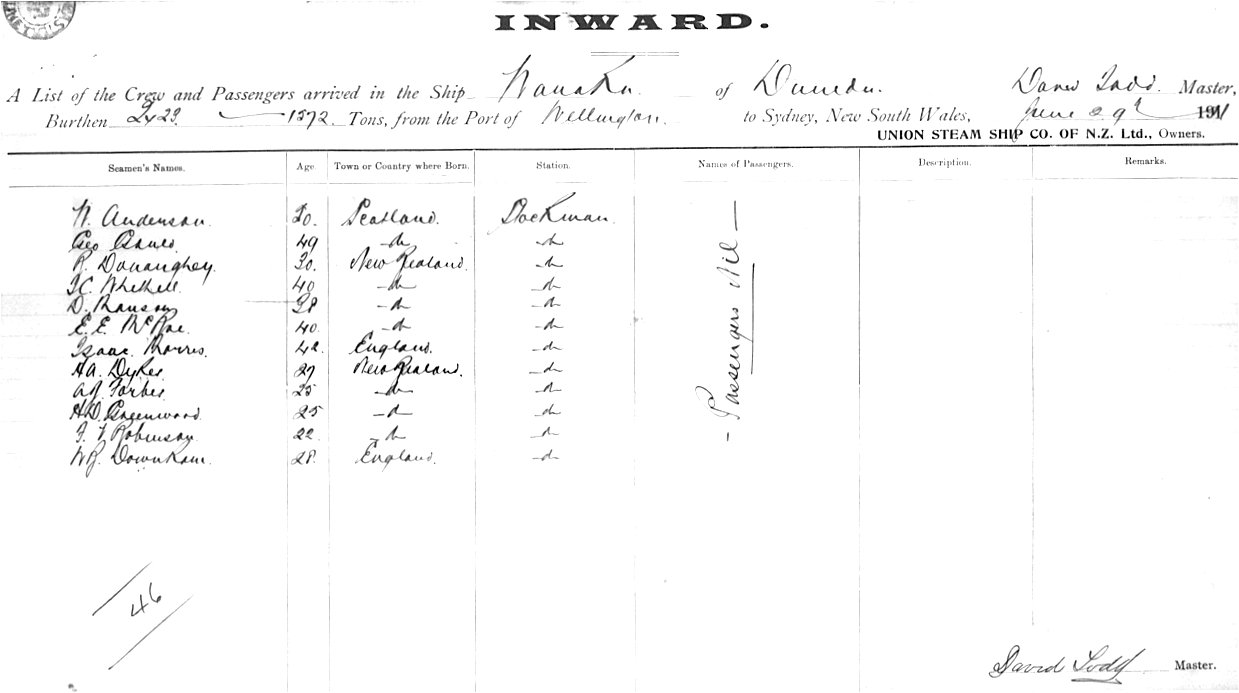 INWARD.
A List of the Crew and Passengers arrived in the Ship Wanaka of Dunedin. David Todd. Master,
Burthen 2423 1572 Tons, from the Port of Wellington. to Sydney, New South Wales, June 29th 1911
UNION STEAM SHIP CO. OF N.Z. Ltd., Owners.
Seamen's Names. Age. Town or Country where Born. Station. Names of Passengers. Description. Remarks.
W. Anderson. 30. Scotland. Stockman.
Geo 49 -do -do
R. Donanghey. 30. New Zealand. -do
40 -do -do
D. 38 -do -do
E. E. McRae. 40. -do -do
Isaac Morris. 42. England. -do
HA. Dykes 27 New Zealand. -do
Forbes 25 -do -do
H.D. Greenwood 25 -do -do
F. Robinson. 22. -do -do
Downham. 28. England. -do
- Passengers Nil -
46
David Todd Master.